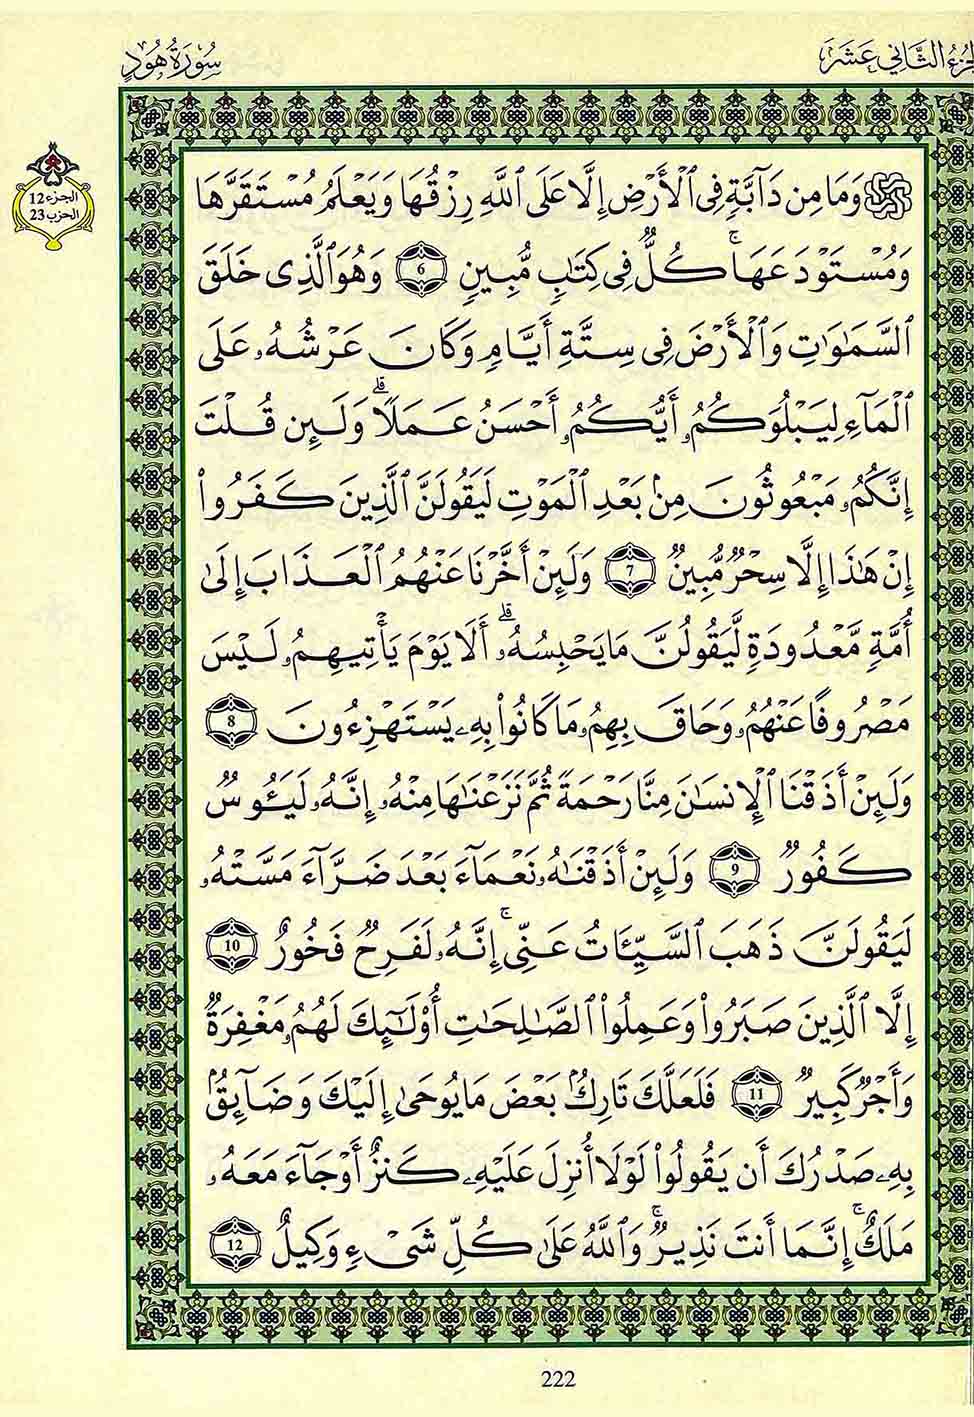 الجزء الثاني عشر
سورة هود
الجزء 12
الحزب 23
وَمَا مِن دَآبَّةٖ فِي ٱلۡأَرۡضِ إِلَّا عَلَى ٱللَّهِ رِزۡقُهَا وَيَعۡلَمُ مُسۡتَقَرَّهَا
وَمُسۡتَوۡدَعَهَاۚ كُلّٞ فِي كِتَٰبٖ مُّبِينٖ 6 وَهُوَ ٱلَّذِي خَلَقَ
ٱلسَّمَٰوَٰتِ وَٱلۡأَرۡضَ فِي سِتَّةِ أَيَّامٖ وَكَانَ عَرۡشُهُۥ عَلَى
ٱلۡمَآءِ لِيَبۡلُوَكُمُۥ أَيُّكُمُۥ أَحۡسَنُ عَمَلٗاۗ وَلَئِن قُلۡتَ
إِنَّكُمُۥ مَبۡعُوثُونَ مِنۢ بَعۡدِ ٱلۡمَوۡتِ لَيَقُولَنَّ ٱلَّذِينَ كَفَرُواْ
إِنۡ هَٰذَا إِلَّا سِحۡرٞ مُّبِينٞ 7 وَلَئِنۡ أَخَّرۡنَا عَنۡهُمُ ٱلۡعَذَابَ إِلَىٰ
أُمَّةٖ مَّعۡدُودَةٖ لَّيَقُولُنَّ مَا يَحۡبِسُهُۥۗ أَلَا يَوۡمَ يَأۡتِيهِمُۥ لَيۡسَ
مَصۡرُوفًا عَنۡهُمُۥ وَحَاقَ بِهِمُۥ مَا كَانُواْ بِهِۦ يَسۡتَهۡزِءُونَ 8
وَلَئِنۡ أَذَقۡنَا ٱلۡإِنسَٰنَ مِنَّا رَحۡمَةٗ ثُمَّ نَزَعۡنَٰهَا مِنۡهُۥ إِنَّهُۥ لَيَـُٔوسٞ
كَفُورٞ 9 وَلَئِنۡ أَذَقۡنَٰهُۥ نَعۡمَآءَ بَعۡدَ ضَرَّآءَ مَسَّتۡهُۥ
لَيَقُولَنَّ ذَهَبَ ٱلسَّيِّـَٔاتُ عَنِّيۚ إِنَّهُۥ لَفَرِحٞ فَخُورٌ 10
إِلَّا ٱلَّذِينَ صَبَرُواْ وَعَمِلُواْ ٱلصَّٰلِحَٰتِ أُوْلَٰٓئِكَ لَهُمُۥ مَغۡفِرَةٞ
وَأَجۡرٞ كَبِيرٞ 11 فَلَعَلَّكَ تَارِكُۢ بَعۡضَ مَا يُوحَىٰ إِلَيۡكَ وَضَآئِقُۢ
بِهِۦ صَدۡرُكَ أَن يَقُولُواْ لَوۡلَا أُنزِلَ عَلَيۡهِۦ كَنزٌ أَوۡ جَآءَ مَعَهُۥ
مَلَكٌۚ إِنَّمَا أَنتَ نَذِيرٞۚ وَٱللَّهُ عَلَىٰ كُلِّ شَيۡءٖ وَكِيلٌ 12
222